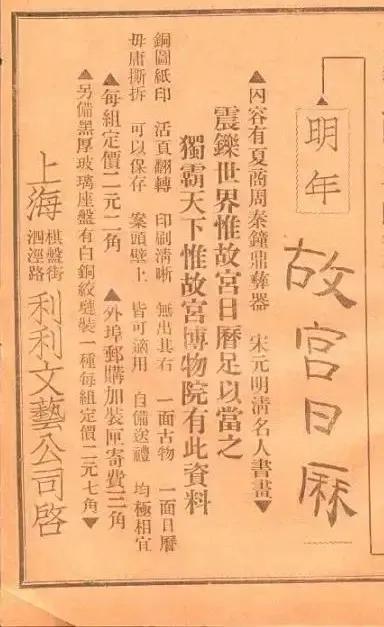 明年
故宮日厤
▲內容有夏商周秦鐘鼎彝器　宋元明清名人書畫▼
震鑠世界惟故宮日曆足以當之
獨霸天下惟故宮博物院有此資料
銅圖紙印　活頁翻轉　印刷清晰　無出其右　一面古物　一面日曆
毋庸撕拆　可以保存　案頭壁上　皆可適用　自備送禮　均極相宜
▲每組定價二元二角　▲外埠郵購加裝匣寄費三角
▲另備黑厚玻璃座盤有白銅絞鏈裝一種每組定價二元七角▼
上海 棋盤街
泗涇路 利利文藝公司啓